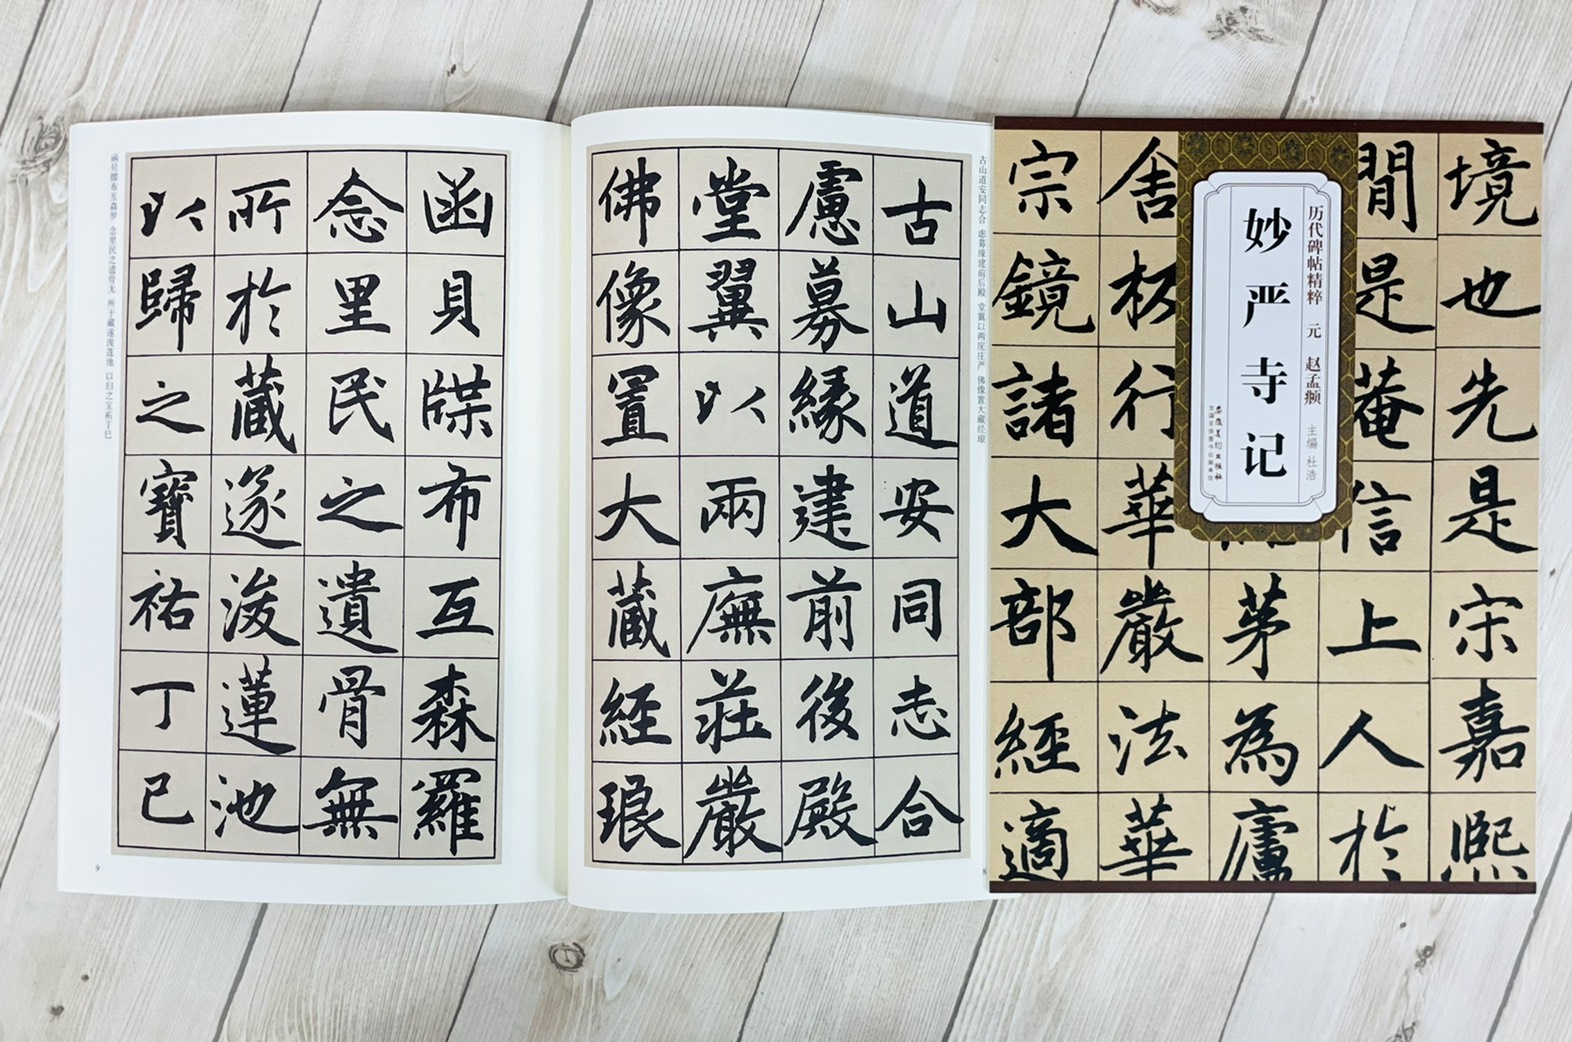 古山道安同志合
慮募緣建前後殿
堂翼以兩廡莊嚴
佛像置大藏經琅
古山道安同志合 虑募缘建前后殿 堂翼以两庑庄严 佛像置大藏经琅
8
函貝牒布互森羅
念里民之遺骨無
所於藏遂浚蓮池
以歸之寶祐丁巳
函贝牒布互森罗 念里民之遗骨无 所于藏遂浚莲池 以归之宝祐丁巳
9
历代碑帖精粹 元 赵孟頫
主编 杜浩
妙严寺记
安徽美术出版社
全国百佳图书出版单位
境也先是宋嘉熙
間是菴信上人於
茅為廬
舍板行華嚴法華
宗鏡諸大部經適